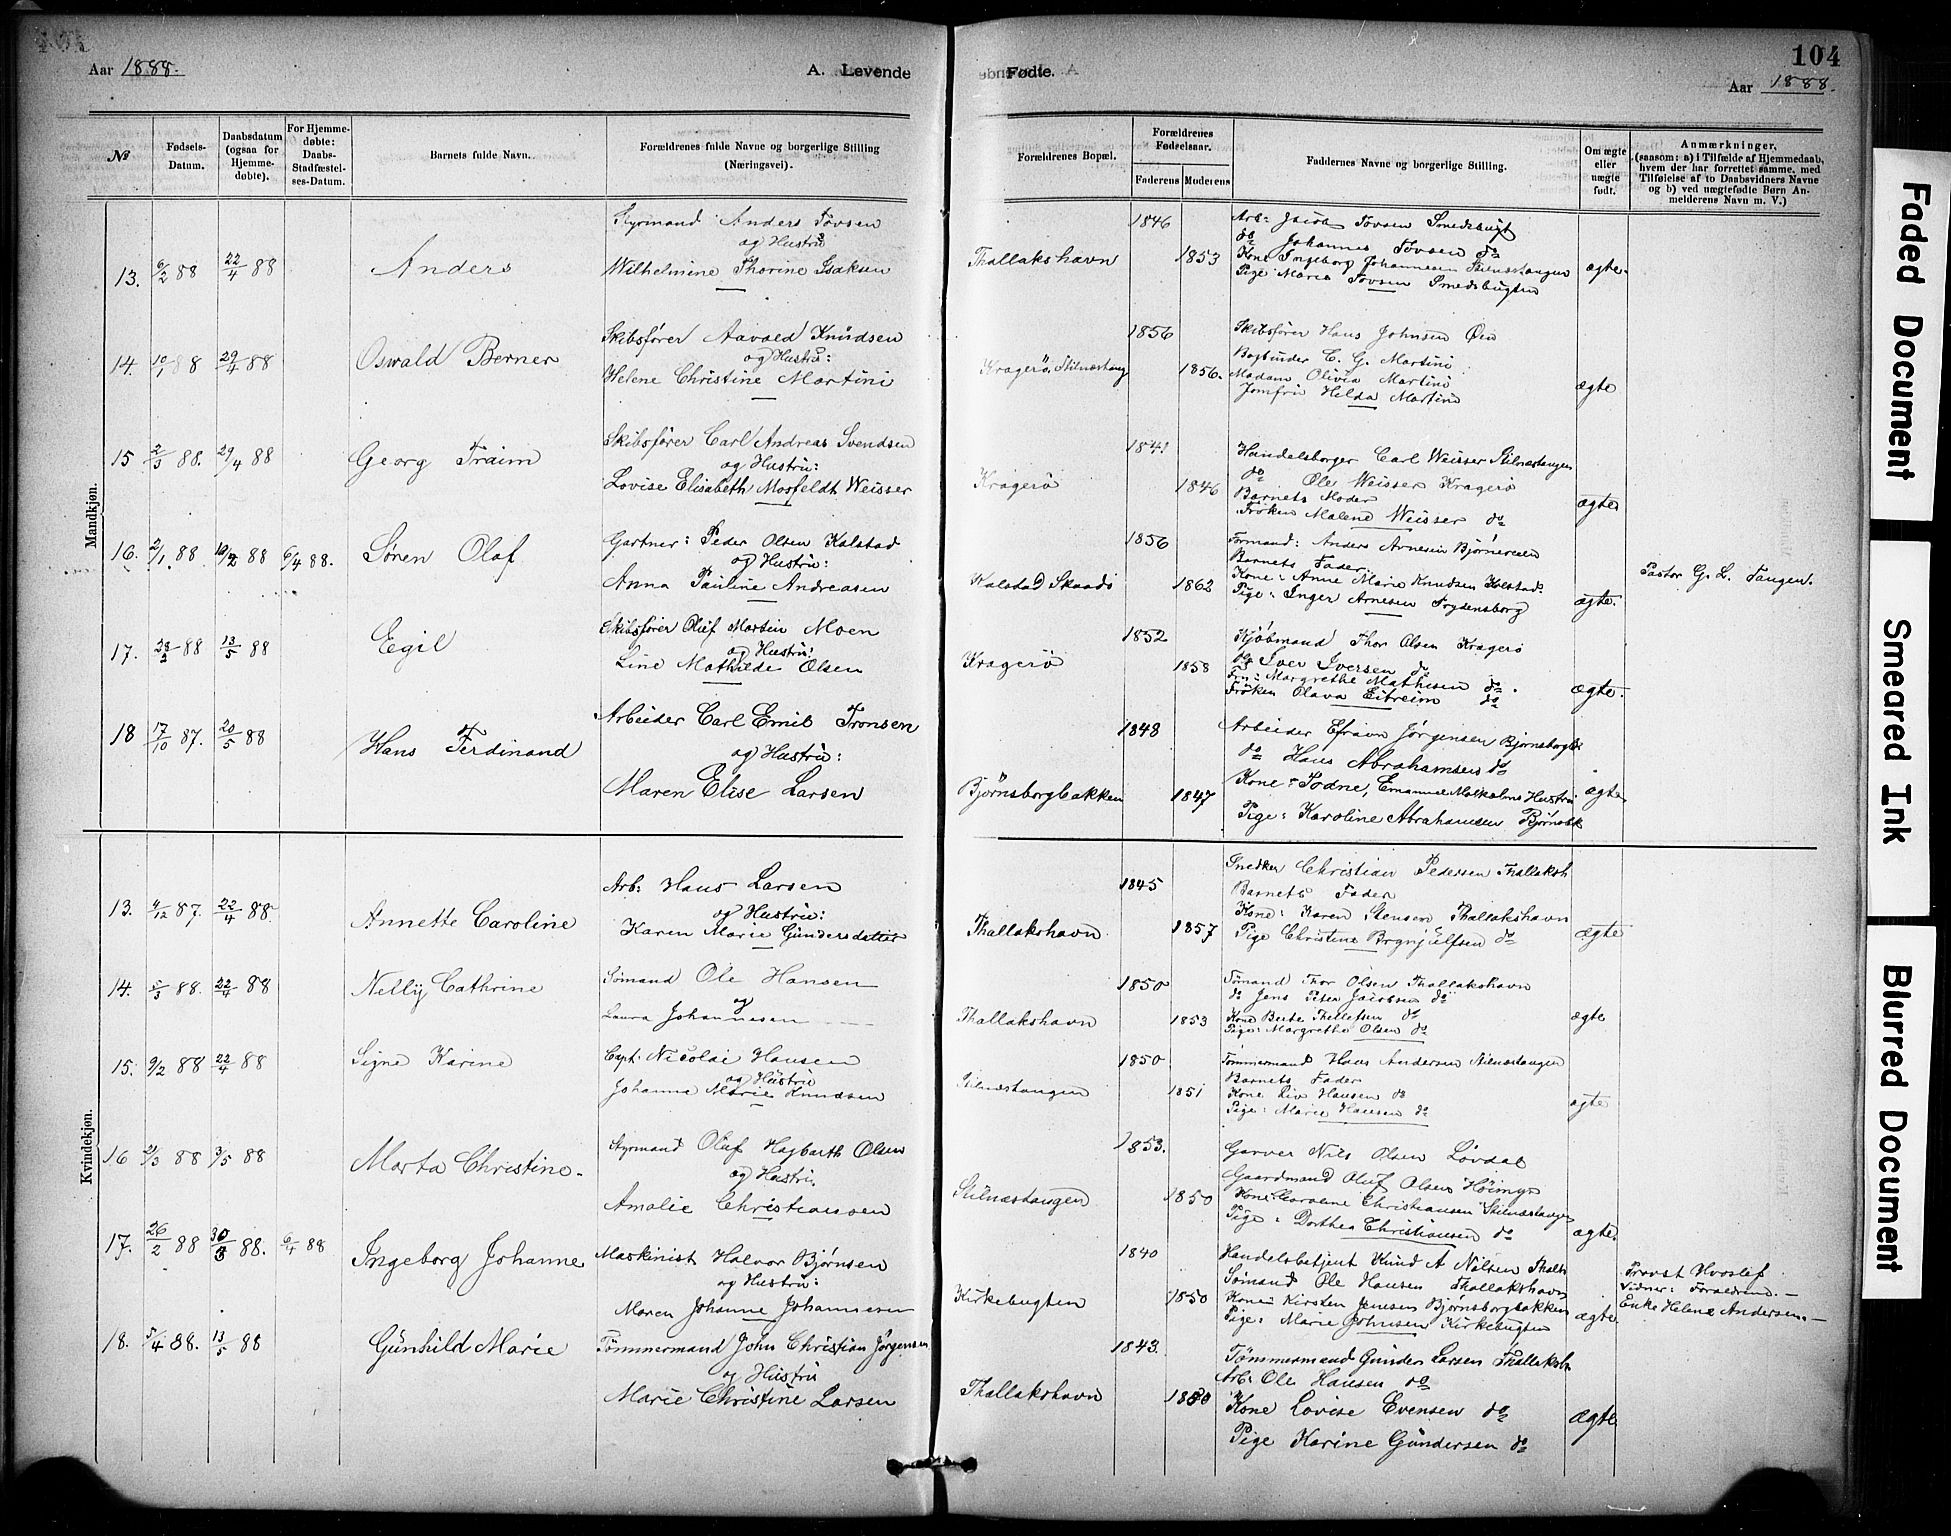 104
Aar 1888.
A. Levende
Fødte.
Aar 1888.
№
Fødsels-Datum.
Daabsdatum (ogsaa for Hjemme-døbte).
For Hjemme-døbte: Daabs-Stadfæstel-ses-Datum.
Barnets fulde Navn.
Forældrenes fulde Navne og borgerlige Stilling (Næringsvei).
Forældrenes Bopæl.
Forældrenes Fødselsaar.
Faderens Moderens
Faddernes Navne og borgerlige Stilling.
Om ægte eller uægte født.
Anmærkninger, (saasom: a) i Tilfælde af Hjemmedaab, hvem der har forrettet samme, med Tilføielse af to Daabsvidners Navne og b) ved uægtefødte Børn Anmelderens Navn m. V.)
Mandkjøn.
13. 6/2 88 22/4 88
Anders
Styrmand Anders Tovsen
og Hustru
Wilhelmine Thorine Isaksen
Thallakshavn
1846
1853
Arb: Jacob Tovsen Smedsbugt
do Johannes Tovsen do
Kone Ingeborg Johannesen Stilnæstangen
Pige Maria Tovsen Smedsbugten
ægte.
14. 10/1 88 29/4 88
Oswald Berner
Skibsfører Aavald Knudsen
og Hustru:
Helene Christine Martini
Kragerö, Stilnæstang
1856
1856.
Skibsfører Hans Johnsen Øen
Bogbinder C. G. Martini
Madam Olivia Martini
Jomfru Hilda Martini
ægte
15 2/3 88. 29/4 88
Georg Fraim
Skibsfører Carl Andreas Svendsen
og Hustru:
Lovise Elisabeth Morfeldt Weisser
Kragerö
1841
1846
Handelsborger Carl Weisser Stilnæstangen
do Ole Weisser Kragerö
Barnets Moder
Frøken Malene Weisser do
ægte
16. 2/1 88 19/2 88 6/4 88.
Søren Olaf
Gartner: Peder Olsen Kalstad
og Hustru:
Anna Pauline Andreasen
Kalstad Skaadö
1856
1862
Formand: Anders Arnesen Bjørnereien
Barnets Fader.
Kone: Anne Marie Knudsen Kalstad
Pige: Inger Arnesen Frydensborg
ægte.
Pastor G. L. Tangen.
17. 28/2 88 13/5 88
Egil
Skibsfører Oluf Martin Moen
og Hustru:
Line Mathilde Olsen
Kragerö
1852
1858
Kjøbmand Thor Olsen Kragerö
do Iver Iversen do
Fru: Margrethe Mathisen do.
Frøken Olava Eitreim do
ægte.
18 17/10 87. 20/5 88
Hans Ferdinand
Arbeider Carl Emil Tronsen
og Hustru:
Maren Elise Larsen
Bjørnsborgbakken
1848
1847
Arbeider Efraim Jørgensen Bjørnsborgb.
do Hans Abrahamsen do
Kone: Todne, Emanuel Malkolms Hustru
Pige: Karoline Abrahamsen Bjørnsbk
ægte
Kvindekjøn.
13. 4/12 87. 22/4 88.
Annette Caroline
Arb: Hans Larsen
og Hustru:
Karen Marie Gundersdatter
Thallakshavn
1845
1857
Snedker Christian Pedersen Thallaksh
Barnets Fader
Kone: Karen Stensen Thallakshavn
Pige Christine Brynjulfsen do
ægte
14. 5/3 88. 22/4 88
Nelly Cathrine
Sømand Ole Hansen
og
Laura Johannesen
Thallakshavn
1850
1853
Sømand Thor Olsen Thallakshavn
do Jens Peter Jacobsen do
Kone Berte Thellefsen do
Pige: Margrethe Olsen do
ægte
15. 9/2 88 22/4 88
Signe Karine
Capt: Nicolai Hansen
og Hustru
Johanna Marie Knudsen
Stilnæstangen
1850
1851
Tømmermand Hans Andersen Stilnæstangen
Barnets Fader
Kone Liv Hansen do
Pige: Marie Hansen do
ægte
16 2/3 88 3/5 88
Marta Christine.
Styrmand Oluf Hagbarth Olsen
og Hustru
Amalie Christiansen
Stilnæstangen
1853.
1850
Garver Nils Olsen Løvdal
Gaardmand Oluf Olsen Höimyr
Kone: Caroline Christiansen Stilnæstangen
Pige: Dorthea Christiansen do
ægte.
17. 26/2 88 30/3 88. 6/4 88
Ingeborg Johanne
Maskinist Halvor Bjørnsen
og Hustru:
Maren Johanne Johannesen
Kirkebugten
1840
1850
Handelsbetjent Knud A Nilsen Thalls
Sømand Ole Hansen Thallakshavn
Kone: Kirsten Jensen Bjørnsborgbakken
Pige: Marie Johnsen Kirkebugten
ægte
Provst Hvoslef
Vidner: Forældrene.
Enke Helene Andersen.
18. 5/4 88. 13/5 88
Gunhild Marie
Tömmermand John Christian Jörgensen
og Hustru
Marie Christine Larsen
Thallakshavn
1843.
1850
Tømmermand Gunder Larsen Thallaksh.
Arb: Ole Hansen do
Kone Lovise Evensen do
Pige Karine Gundersen do
ægte
Faded Document
Smeared Ink
Blurred Document